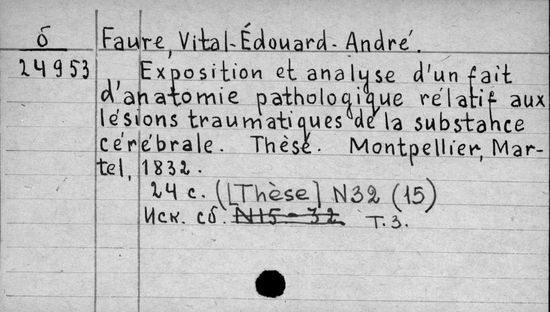 б
24953
Faure, Vital-Édouard-André.
Exposition et analyse d'un fait
d'anatomie pathologique relatif aux
lésions traumatiques de la substance
cérébrale. Thèse. Montpellier, Mar-
tel, 1832.
24 с. ([Thèse] N32 (15)
Иск. сб. N15-32 Т.3.